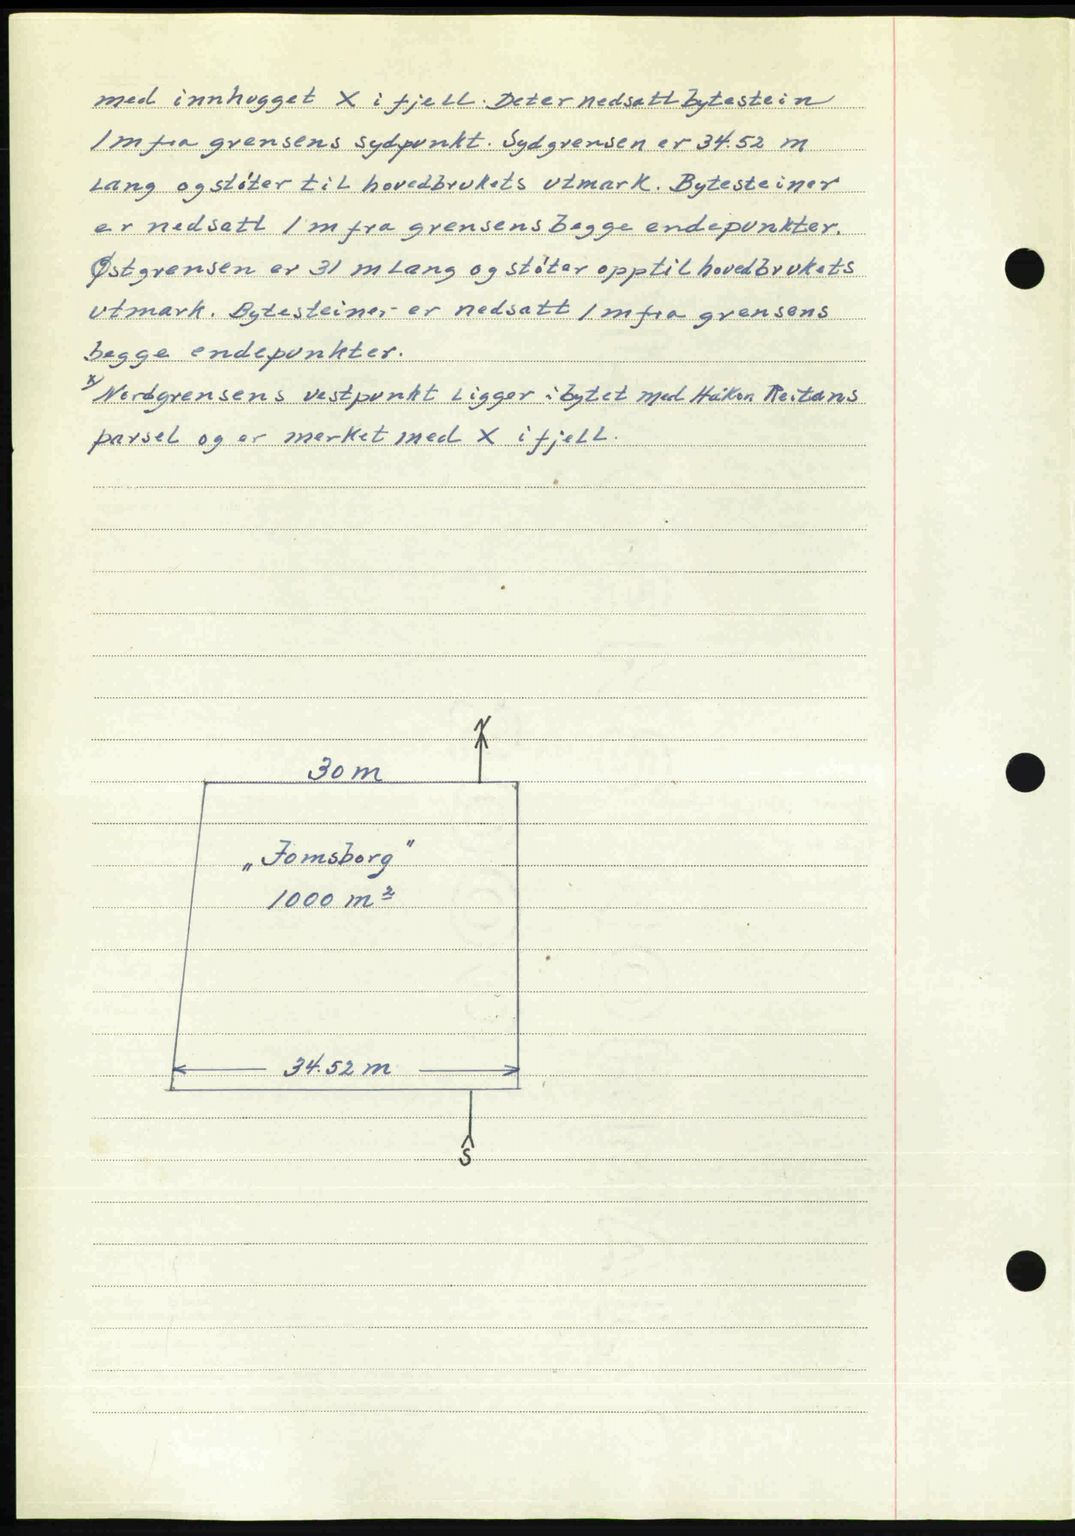 med innhugget X i fjell. Det er nedsatt bytestein
1 m fra grensens sydpunkt. Sydgrensen er 34.52 m
lang og støter til hovedbrukets utmark. Bytesteiner
er nedsatt 1 m fra grensens begge endepunkter.
Østgrensen er 31 m lang og støter opp til hovedbrukets
utmark. Bytesteiner er nedsatt 1 m fra grensens
begge endepunkter.
x) Nordgrensens vestpunkt ligger i bytet med Håkon Reitans
parsel og er merket med X i fjell.
N
30 m
„Jomsborg"
1000 m²
34.52 m
S